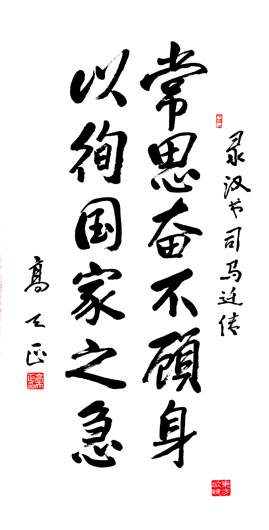 录汉书司马迁传
常思奋不顾身
以徇国家之急
高天正